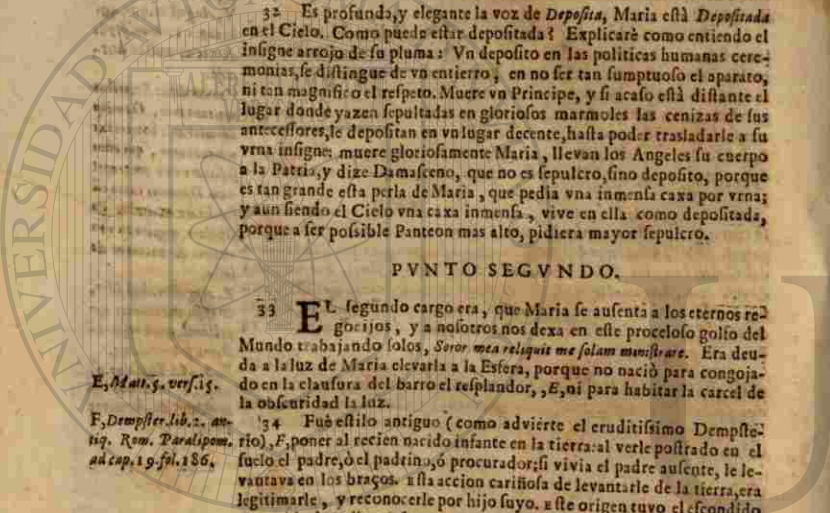 32 Es profunda, y elegante la voz de Deposita, Maria està Depositada
en el Cielo. Como puede estar depositada? Explicarè como entiendo el
insigne arrojo de su pluma: Vn deposito en las politicas humanas cere-
monias, se distingue de vn entierro, en no ser tan sumptuoso el aparato,
ni tan magnifico el respeto. Muere vn Principe, y si acaso està distante el
lugar donde yazen sepultadas en gloriosos marmoles las cenizas de sus
antecessores, le depositan en vn lugar decente, hasta poder trasladarle a su
vrna insigne: muere gloriosamente Maria, llevan los Angeles su cuerpo
a la Patria, y dize Damasceno, que no es sepulcro, sino deposito, porque
es tan grande esta perla de Maria, que pedia vna inmensa caxa por vrna;
y aun siendo el Cielo vna caxa inmensa, vive en ella como depositada,
porque a ser possible Panteon mas alto, pidiera mayor sepulcro.
PVNTO SEGVNDO.
33 EL segundo cargo era, que Maria se ausenta a los eternos re-
gocijos, y a nosotros nos dexa en este proceloso golfo del
Mundo trabajando solos, Soror mea reliquit me solam ministrare. Era deu-
da a la luz de Maria elevarla a la Esfera, porque no naciò para congoja-
E, Matt. 5. vers. 15. do en la clausura del barro el resplandor, ,E, ni para habitar la carcel de
la obscuridad la luz.
F, Dempster. lib. 2. an- 34 Fuè estilo antiguo (como advierte el eruditissimo Dempste-
tiq. Rom. Paralipom. rio) ,F, poner al recien nacido infante en la tierra: al verle postrado en el
ad cap. 19. fol. 186. suelo el padre, ò el padrino, ò procurador; si vivia el padre ausente, le le-
vantava en los braços. Esta accion cariñosa de levantarle de la tierra, era
legitimarle, y reconocerle por hijo suyo. Este origen tuvo el escondido